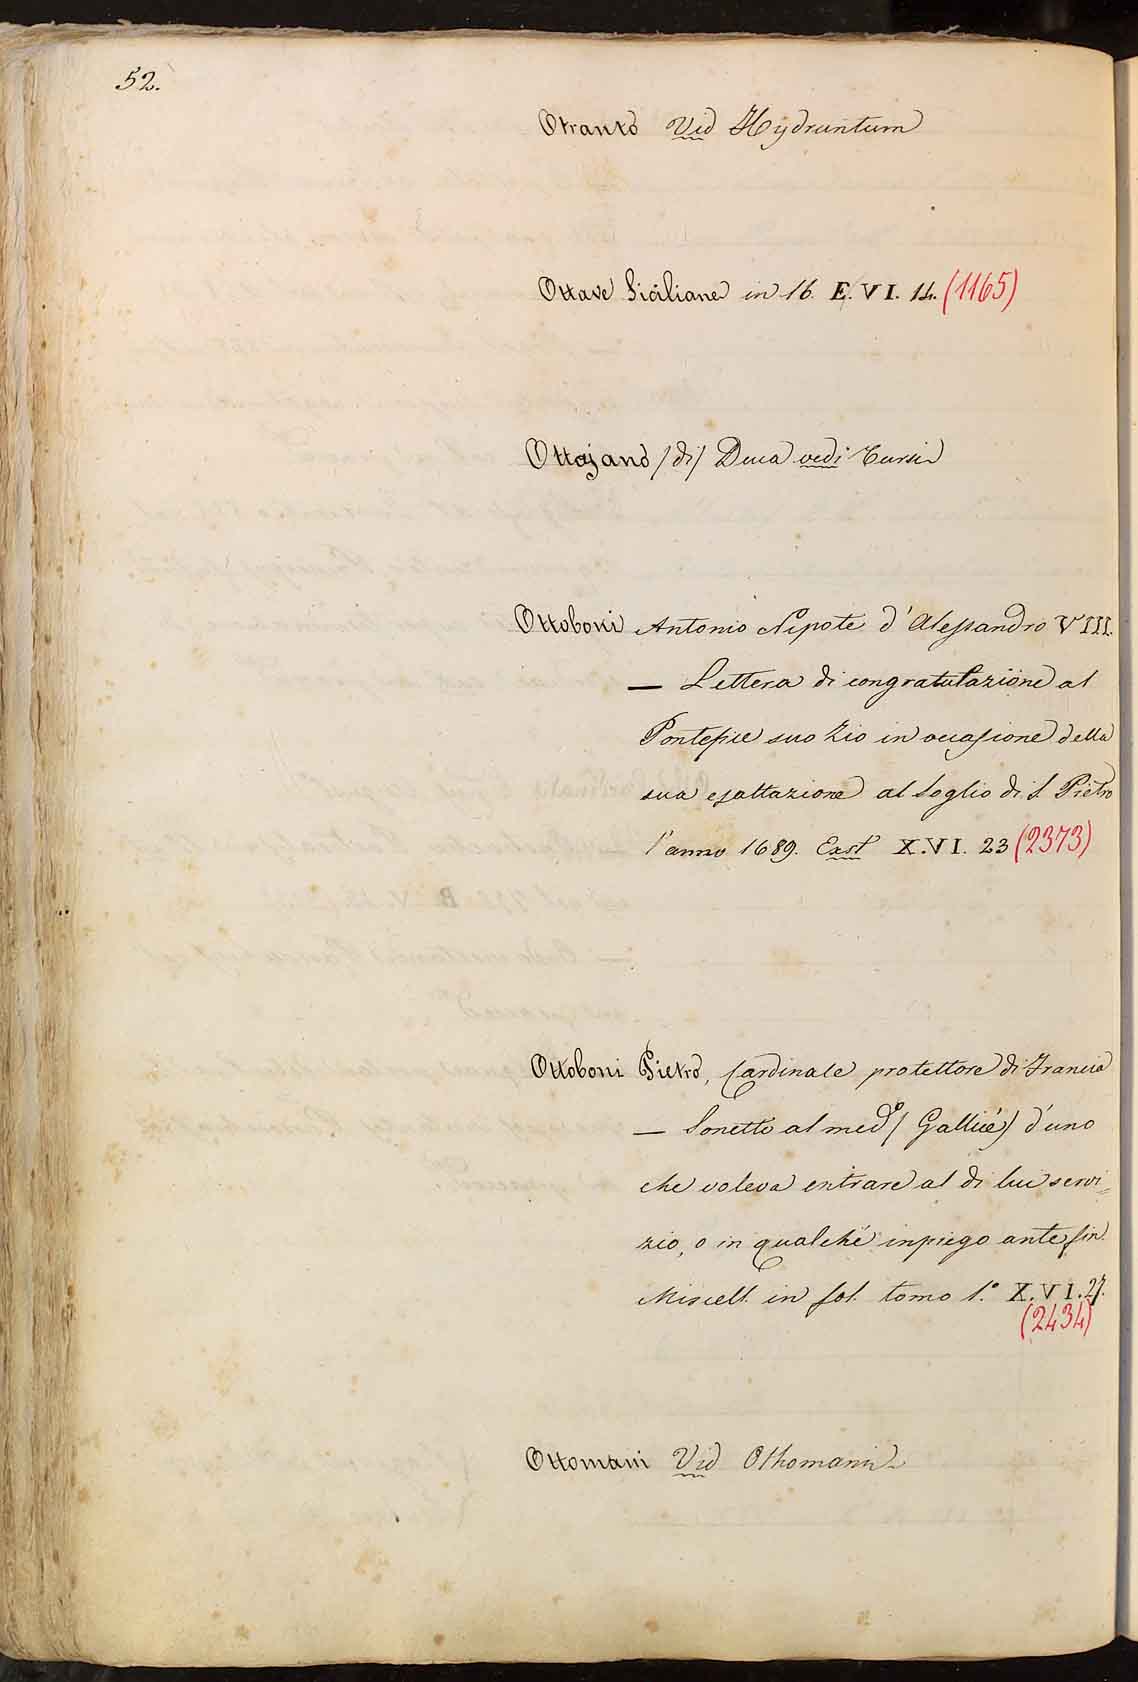 52.
Otranto Vid Hydruntum
Ottave Siciliane in 16. E. VI. 14. (1165)
Ottajano /di/ Duca vedi Tursi
Ottoboni Antonio Nipote d'Alessandro VIII.
— Lettera di congratulazione al
Pontefice suo Zio in occasione della
sua esaltazione al Soglio di S. Pietro
l'anno 1689. Exst X.VI. 23 (2373)
Ottoboni Pietro, Cardinale protettore di Francia
— Sonetto al medo / Gallicé) d'uno
che voleva entrare al di lui servi=
zio, o in qualché inpiego ante fin.
Miscell. in fol. tomo 1.° X.VI.27.
(2434)
Ottomani Vid Othomani